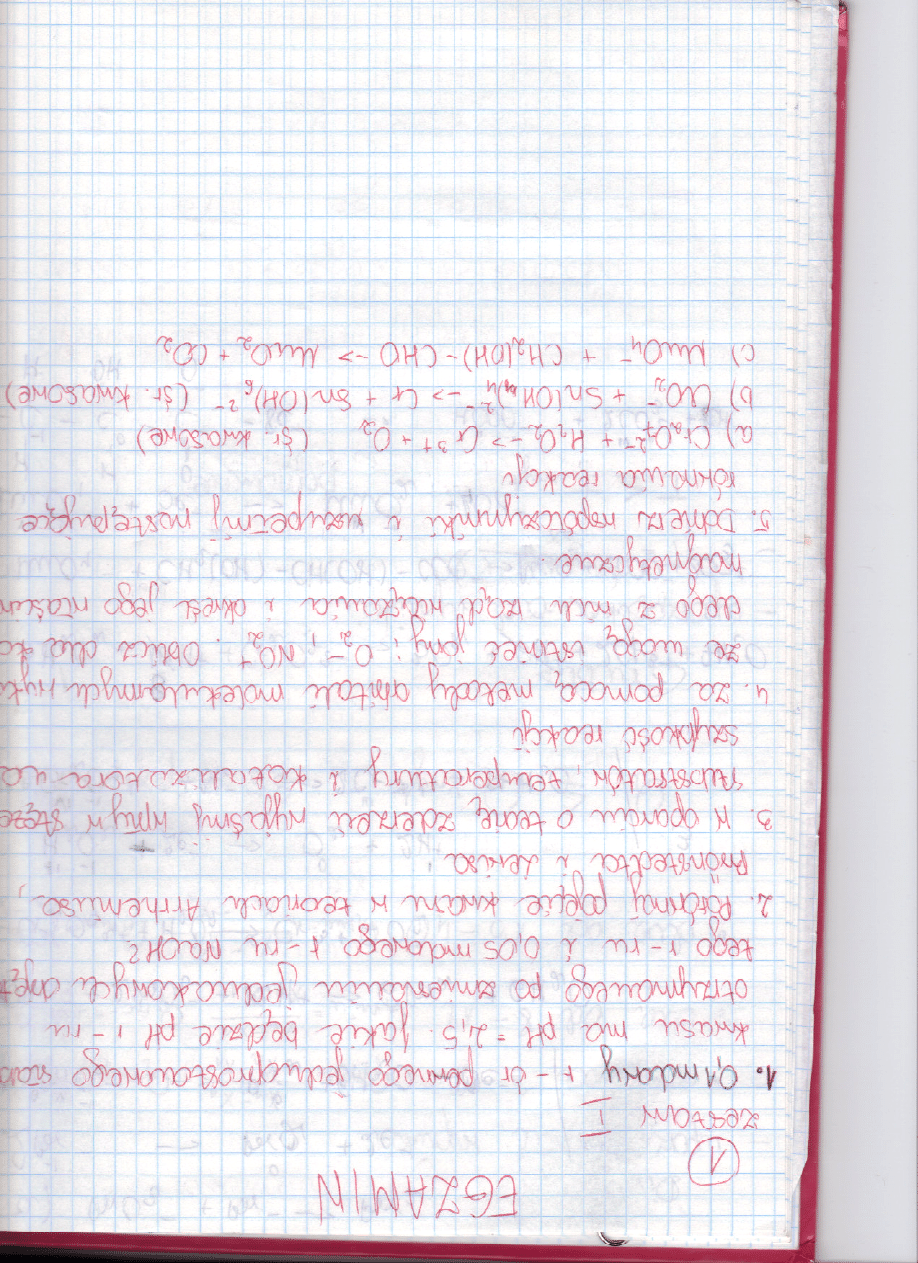 EGZAMIN
1
zestaw I
1. 0,1 molowy r-ór pewnego jednoprotonowego słab
kwasu ma pH = 2,5. Jakie będzie pH r-ru
otrzymanego po zmieszaniu jednakowych objęt
tego r-ru i 0,05 molowego r-ru NaOH?
2. Porównaj pojęcie kwasu w teoriach Arrheniusa,
Brönstedta i Lewisa
3. W oparciu o teorię zderzeń wyjaśnij wpływ stęże
substratów, temperatury i katalizatora na
szybkość reakcji
4. Za pomocą metody orbitali molekularnych, wyka
że mogą istnieć jony: O₂⁻, NO⁺. Oblicz dla każ
dego z nich rząd wiązania i określ jego właśc
magnetyczne.
5. Dobierz współczynniki i uzupełnij następujące
równania reakcji
a) Cr₂O₇²⁻ + H₂O₂ -> Cr³⁺ + O₂ (śr. kwasowe)
b) ClO₂⁻ + Sn(OH)₄²⁻ -> Cl⁻ + Sn(OH)₆²⁻ (śr. kwasowe)
c) MnO₄⁻ + CH₂(OH)-CHO -> MnO₂ + CO₂